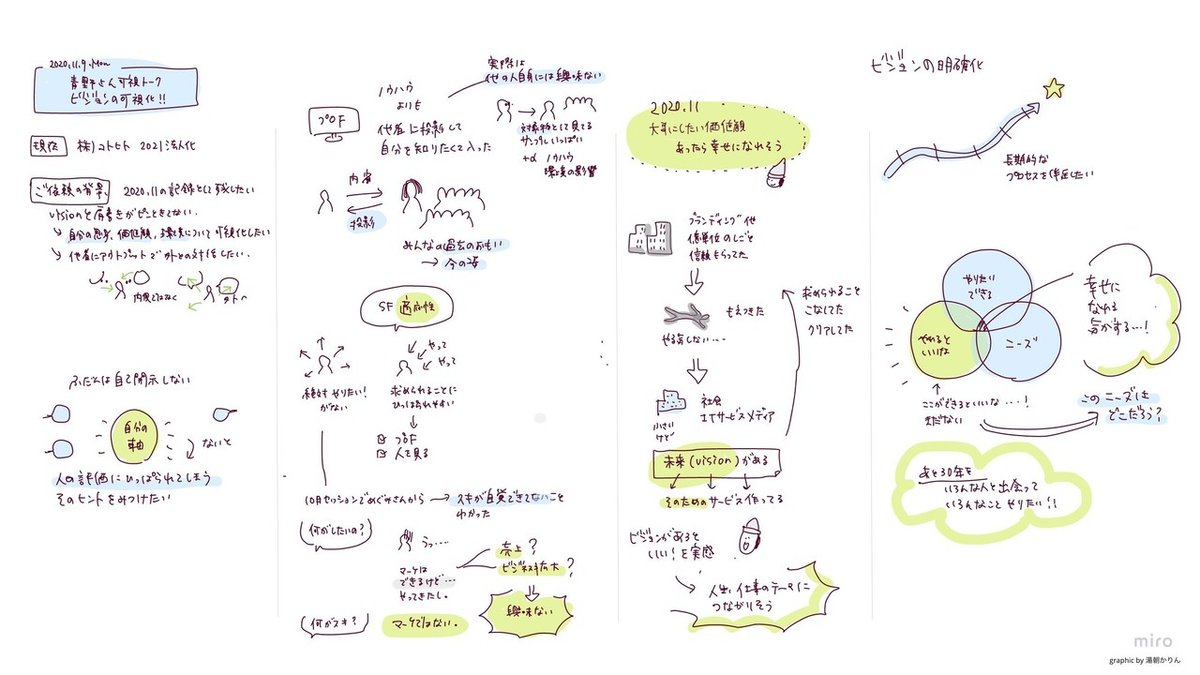 2020.11.9.Mon
青野さん可視トーク
ビジョンの可視化!!
現在
株)コトヒト 2021法人化
ご依頼の背景
2020.11の記録として残したい
visionと肩書きがピンときてない.
↳ 自分の思考、価値観、環境について可視化したい
↳ 他者にアウトプットで外との対話したい.
内度ではなく
外へ
ふだんは自己開示しない
自分の
軸
ないと
人の評価にひっぱられてしまう
そのヒントをみつけたい
プロF
ノウハウ
よりも
実際は
他の人自身には興味ない
他者に投影して
自分を知りたくて入った
対象物として見てる
サンプルいっぱい
+α ノウハウ
環境の影響
内省
投影
みんなの過去のおもい
→ 今の姿
SF 適応性
やって
やって
絶対やりたい!
がない
求められることに
ひっぱられやすい
プロF
人で見る
10月セッションでめぐみさんから → スキが自覚できてないこと
わかった
何がしたいの?
うっ....
マーケは
できるけど...
やってきたし。
売上?
ビジネス拡大?
興味ない
何がスキ?
マーケではない。
2020.11
大事にしたい価値観
あったら幸せになれそう
ブランディング他
億単位のしごと
信頼もらってた
もえつきた
やる気しない....
求められること
こなしてた
クリアしてた
小さい
けど
社会
ITサービスメディア
未来(vision)がある
そのためのサービス作ってる
ビジョンがあると
いい!を実感
人生、仕事のテーマに
つながりそう
ビジョンの明確化
長期的な
プロセスを伴走したい
やりたい
できる
やれると
いいな
ニーズ
幸せに
なれる
気がする...!
ここができるといいな....!
まだない
このニーズは
どこだろう?
あと30年を
いろんな人と出会って
いろんなことやりたい!!
miro
graphic by 湯朝かりん